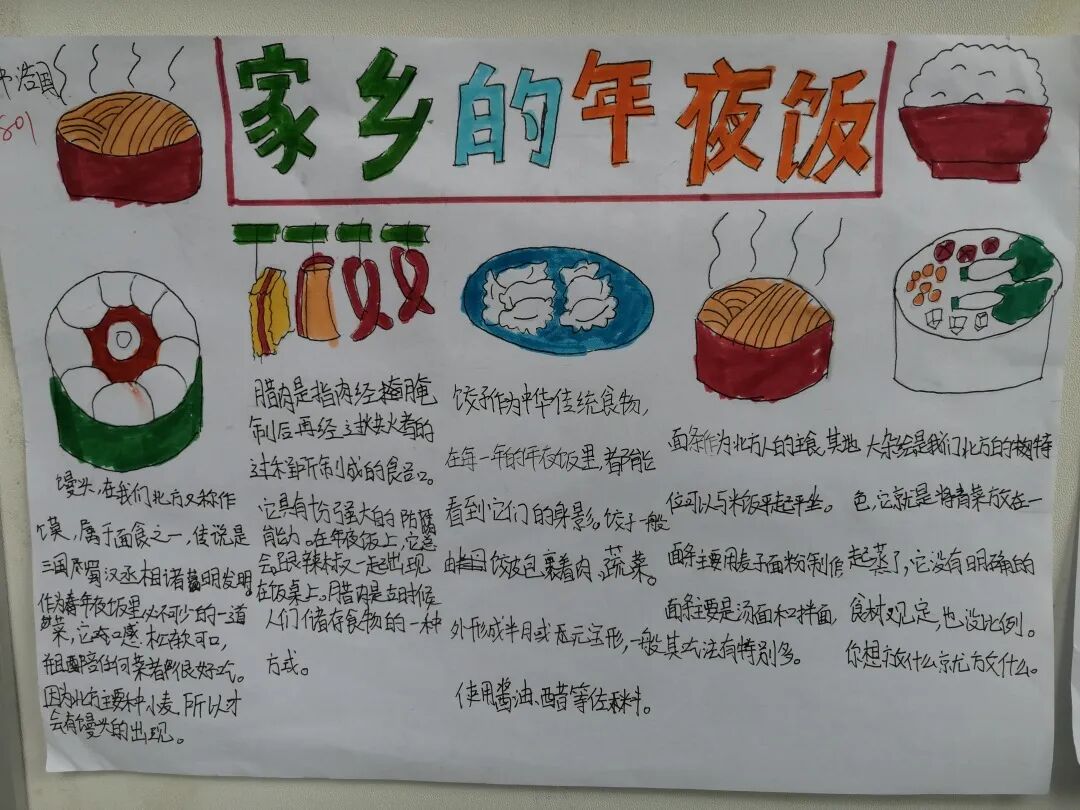 浩国
801
家乡的年夜饭
馒头,在我们北方又称作
馍,属于面食之一,传说是
三国蜀汉丞相诸明发明。
作为年夜饭里必不可少的一道
菜,它口感松软可口,
配任何菜都很好吃。
因为北方主要种小麦,所以才
会有馒头的出现。
腊肉是指肉经腌
制后再经过烘火者的
过程所制成的食品。
它具有十分强大的防腐
能力。在年夜饭上,它总
会跟辣椒一起出现
在饭桌上。腊肉是古时候
人们储存食物的一种
方式。
饺子作为中华传统食物,
在每一年的年夜饭里,都能
看到它们的身影。饺子一般
由饺皮包裹着肉、蔬菜。
外形成半月或元宝形,一般
使用酱油、醋等佐料。
面条作为北方人的主食,其地
位可以与米饭平起平坐。
面条主要用麦子面粉制作
面条主要是汤面和拌面,
其吃法有特别多。
大杂烩是我们北方的特
色,它就是将青菜放在一
起蒸了,它没有明确的
食材规定,也没比例。
你想放什么就放什么。